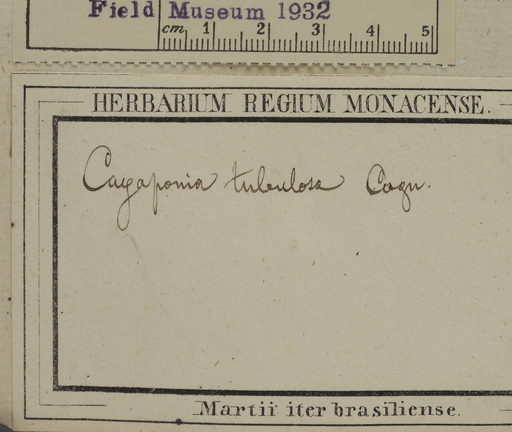 Field Museum 1932
cm 1 2 3 4 5
HERBARIUM REGIUM MONACENSE.
Cayaponia tubulosa Cogn.
Martii iter brasiliense.